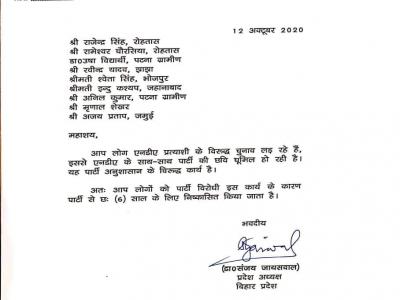 12 अक्टूबर 2020
श्री राजेन्द्र सिंह, रोहतास
श्री रामेश्वर चौरसिया, रोहतास
डा०उषा विद्यार्थी, पटना ग्रामीण
श्री रवीन्द्र यादव, झाझा
श्रीमती श्वेता सिंह, भोजपुर
श्रीमती इन्दु कश्यप, जहानाबाद
श्री अनिल कुमार, पटना ग्रामीण
श्री मृणाल शेखर
श्री अजय प्रताप, जमुई
महाशय,
आप लोग एनडीए प्रत्याशी के विरूद्ध चुनाव लड़ रहे हैं,
इससे एनडीए के साथ-साथ पार्टी की छवि धूमिल हो रही है।
यह पार्टी अनुशासान के विरूद्ध कार्य है।
अतः आप लोगों को पार्टी विरोधी इस कार्य के कारण
पार्टी से छः (6) साल के लिए निष्कासित किया जाता है।
भवदीय
(डा०संजय जायसवाल)
प्रदेश अध्यक्ष
बिहार प्रदेश